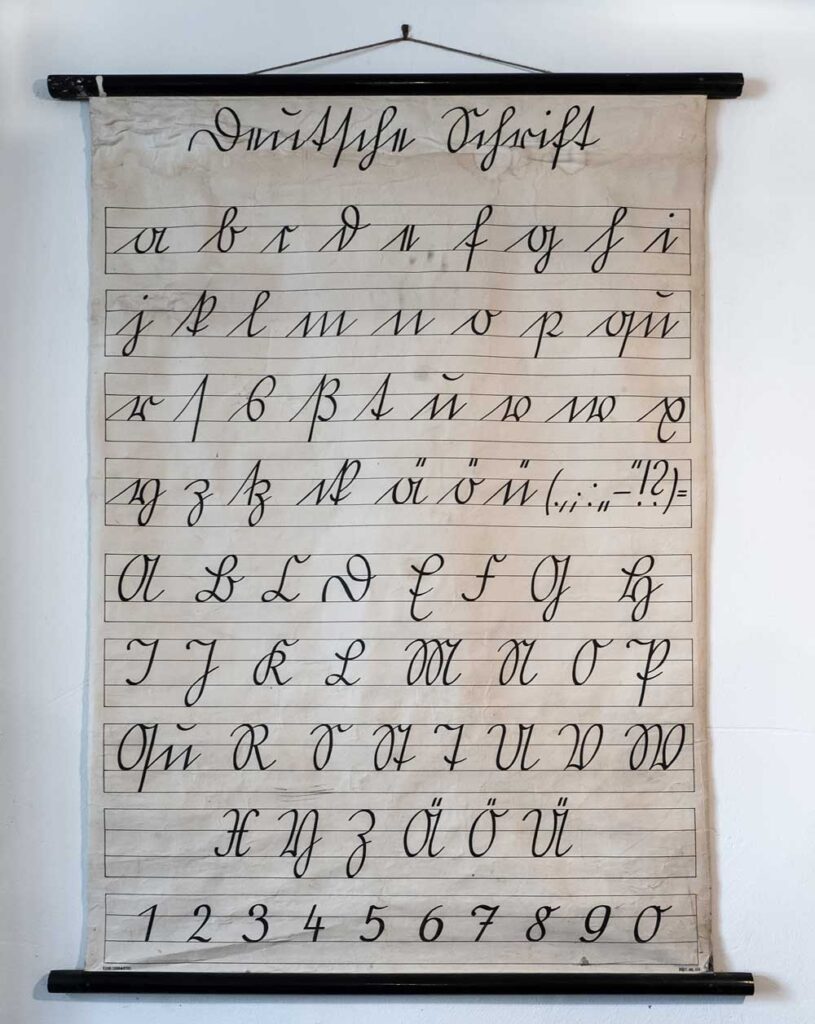 Deutsche Schrift
a b c d e f g h i
j k l m n o p qu
r ſ s ß t u v w x
y z tz ck ä ö ü (.,;:„–“!?)=
A B C D E F G H
I J K L M N O P
Qu R S St T U V W
X Y Z Ä Ö Ü
1 2 3 4 5 6 7 8 9 0